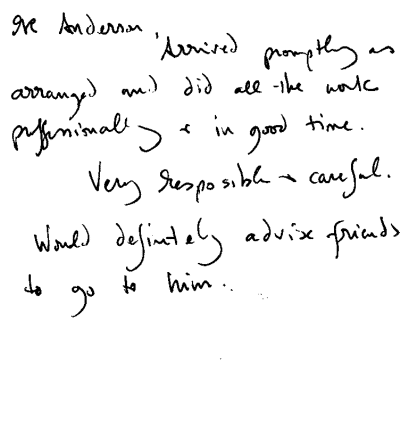 Re Anderson,
Arrived promptly as
arranged and did all the work
proffessionally & in good time.
Very resposible & careful.
Would defintely advise friends
to go to him.